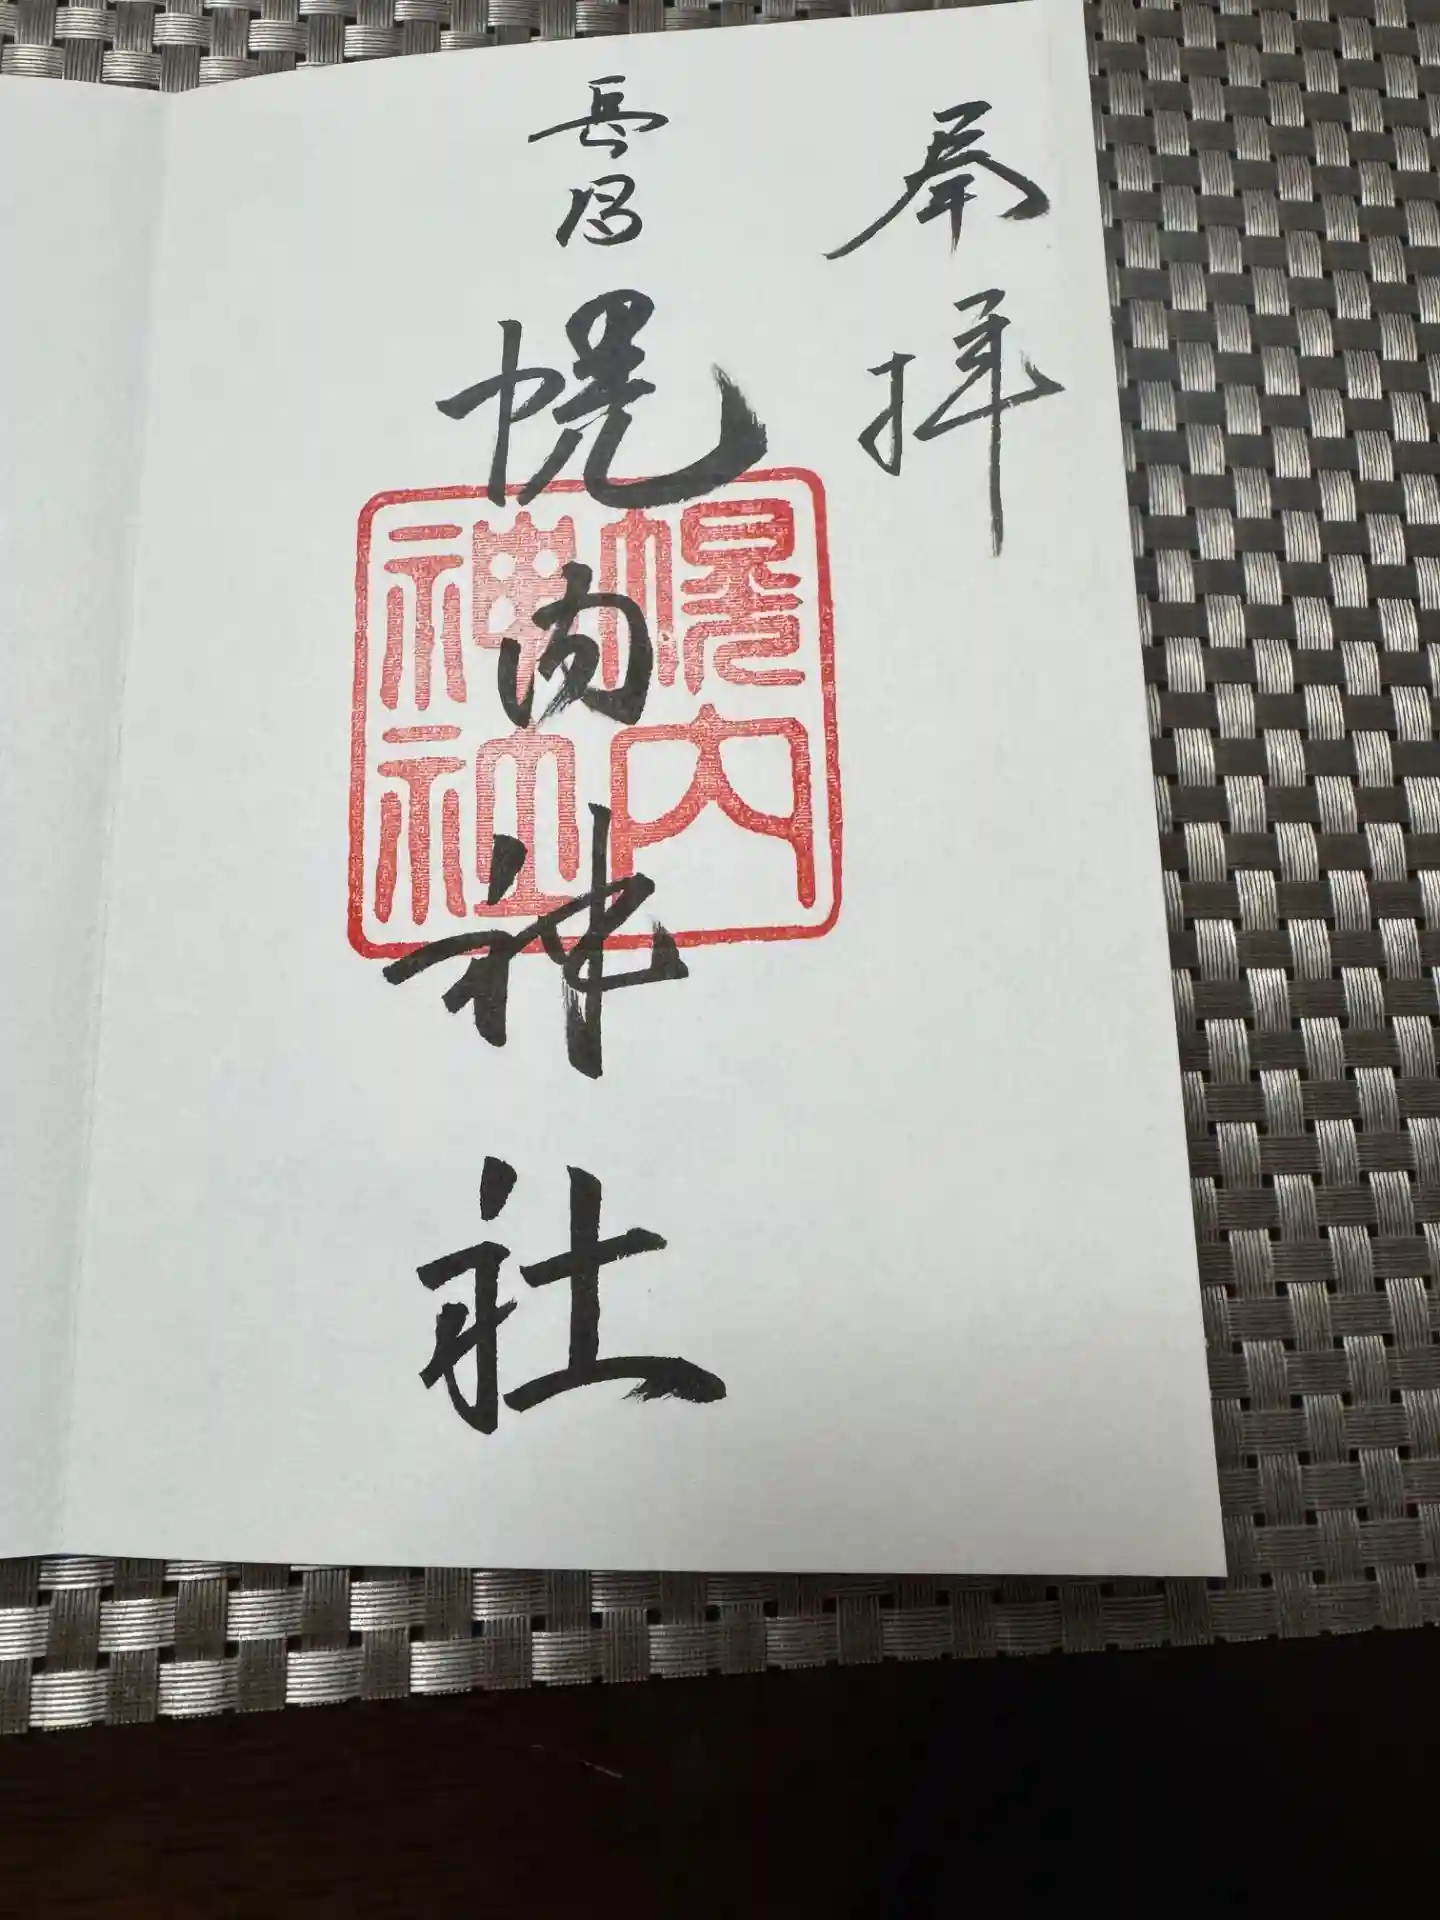 奉拝
長沼
幌内神社
幌内
神社